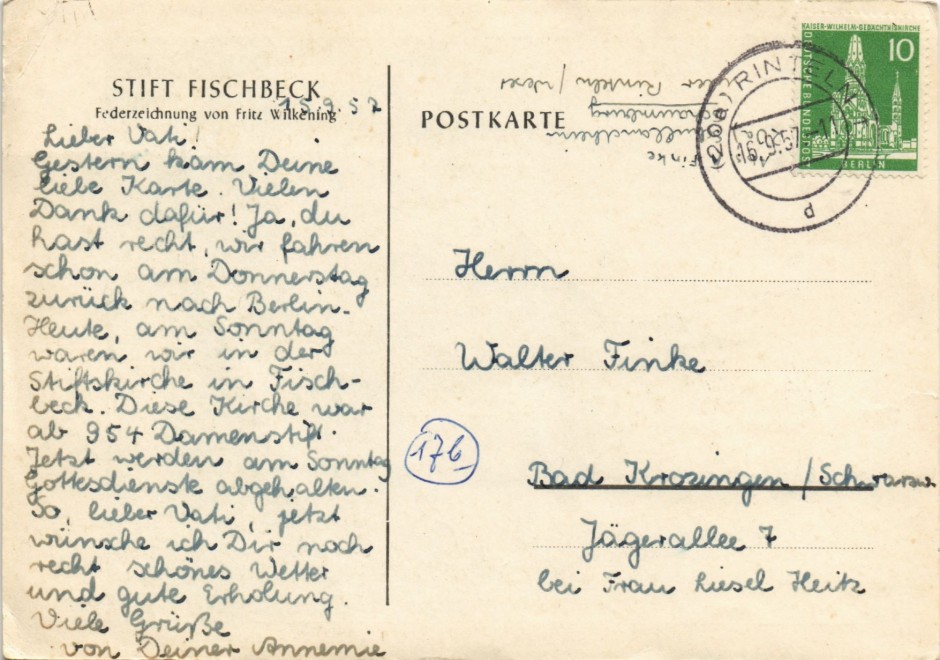 STIFT FISCHBECK
Federzeichnung von Fritz Wilkening
15.9.57
Lieber Vati!
Gestern kam Deine
liebe Karte. Vielen
Dank dafür! Ja, du
hast recht, wir fahren
schon am Donnerstag
zurück nach Berlin.
Heute, am Sonntag
waren wir in der
Stiftskirche in Fisch-
beck. Diese Kirche war
ab 954 Damenstift.
Jetzt werden am Sonntag
Gottesdienste abgehalten.
So, lieber Vati, jetzt
wünsche ich Dir noch
recht schönes Wetter
und gute Erholung.
Viele Grüße
von Deiner Annemie
POSTKARTE
Finke
Rinteln / Weser
KAISER-WILHELM-GEDÄCHTNISKIRCHE
10
DEUTSCHE BUNDESPOST
BERLIN
(20a) RINTELN
16.9.57
d
Herrn
Walter Finke
17b
Bad Krozingen / Schwarzw.
Jägerallee 7
bei Frau Liesel Heitz